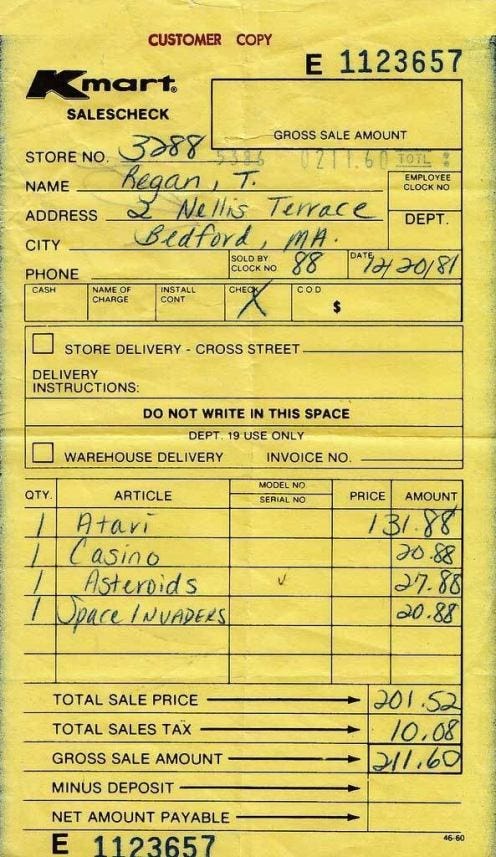 CUSTOMER COPY
E 1123657
Kmart®
SALESCHECK
GROSS SALE AMOUNT
STORE NO. 3288 5386 0211.60 TOTL
NAME Regan, T.
EMPLOYEE CLOCK NO
ADDRESS 2 Nellis Terrace
DEPT.
CITY Bedford, MA.
PHONE
SOLD BY CLOCK NO 88
DATE 12/20/81
CASH NAME OF CHARGE INSTALL CONT CHECK X C O D $
STORE DELIVERY - CROSS STREET
DELIVERY
INSTRUCTIONS:
DO NOT WRITE IN THIS SPACE
DEPT. 19 USE ONLY
WAREHOUSE DELIVERY INVOICE NO.
QTY. ARTICLE MODEL NO. SERIAL NO PRICE AMOUNT
1 Atari 131.88
1 Casino 20.88
1 Asteroids 27.88
1 Space INVADERS 20.88
TOTAL SALE PRICE 201.52
TOTAL SALES TAX 10.08
GROSS SALE AMOUNT 211.60
MINUS DEPOSIT
NET AMOUNT PAYABLE
E 1123657
46-60